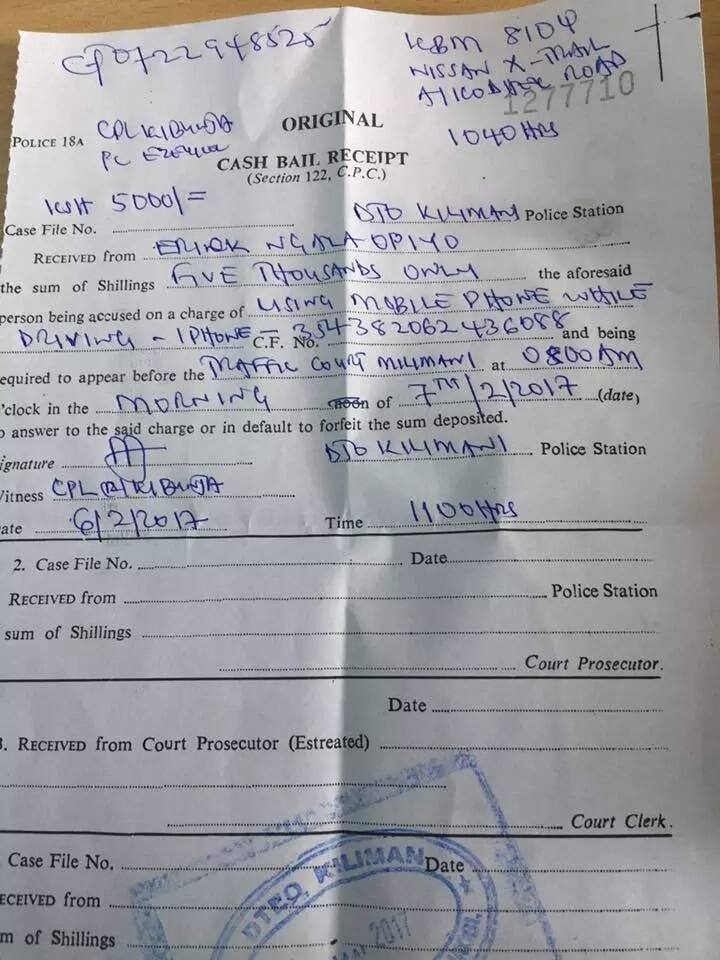 0722948525
KBM 810Y
NISSAN X-TRAIL
ROAD
1277710
ORIGINAL
POLICE 18A
CPL KIBUNJA
PC
1040 HRS
CASH BAIL RECEIPT
(Section 122, C.P.C.)
KSH 5000/=
Case File No.
DTO KILIMANI Police Station
RECEIVED from NGALA OPIYO
the sum of Shillings FIVE THOUSANDS ONLY the aforesaid
person being accused on a charge of USING MOBILE PHONE WHILE
DRIVING - IPHONE - C.F. No. 354382062436088 and being
equired to appear before the TRAFFIC COURT MILIMANI at 0800AM
'clock in the MORNING noon of 7TH/2/2017 (date)
o answer to the said charge or in default to forfeit the sum deposited.
ignature DTO KILIMANI Police Station
itness CPL KIBUNJA
ate 6/2/2017 Time 1100HRS
2. Case File No. Date
RECEIVED from Police Station
sum of Shillings
Court Prosecutor.
Date
3. RECEIVED from Court Prosecutor (Estreated)
Court Clerk.
Case File No. Date
ECEIVED from
m of Shillings
DTEO, KILIMAN
2017